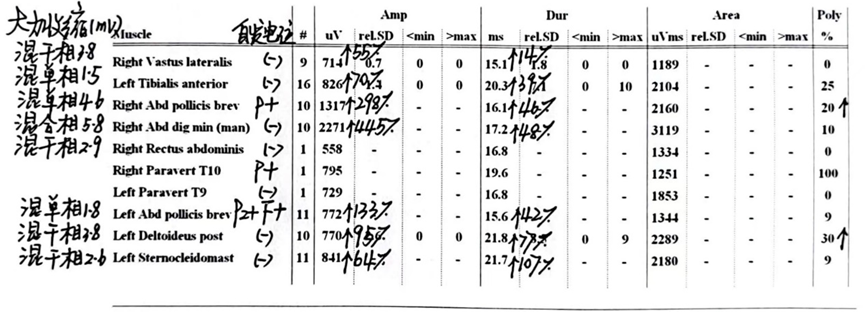 大力收缩(mv) Amp Dur Area Poly
Muscle 自发电位 # uV rel.SD <min >max ms rel.SD <min >max uVms rel.SD <min >max %
混干相3.8 Right Vastus lateralis (-) 9 714 ↑55% 0.7 0 0 15.1 ↑14% 1.8 0 0 1189 0
混单相1.5 Left Tibialis anterior (-) 16 826 ↑70% 0 0 20.3 ↑39% 0 10 2104 - - - 25
混单相4.6 Right Abd pollicis brev P+ 10 1317 ↑298% - - 16.1 ↑46% - - 2160 - - - 20 ↑
混合相5.8 Right Abd dig min (man) (-) 10 2271 ↑445% - - 17.2 ↑48% - - 3119 - - - 10
混干相2.9 Right Rectus abdominis (-) 1 558 - - - 16.8 - - - 1334 - - - 0
Right Paravert T10 P+ 1 795 - - - 19.6 - - - 1251 - - - 100
Left Paravert T9 (-) 1 729 - - - 16.8 - - - 1853 - - - 0
混单相1.8 Left Abd pollicis brev P2+F+ 11 772 ↑133% - - 15.6 ↑42% - - 1344 - - - 9
混干相3.8 Left Deltoideus post (-) 10 770 ↑95% 0 0 21.8 ↑77% 0 9 2289 - - - 30 ↑
混干相2.6 Left Sternocleidomast (-) 11 841 ↑64% - - 21.7 ↑107% - - 2180 - - - 9